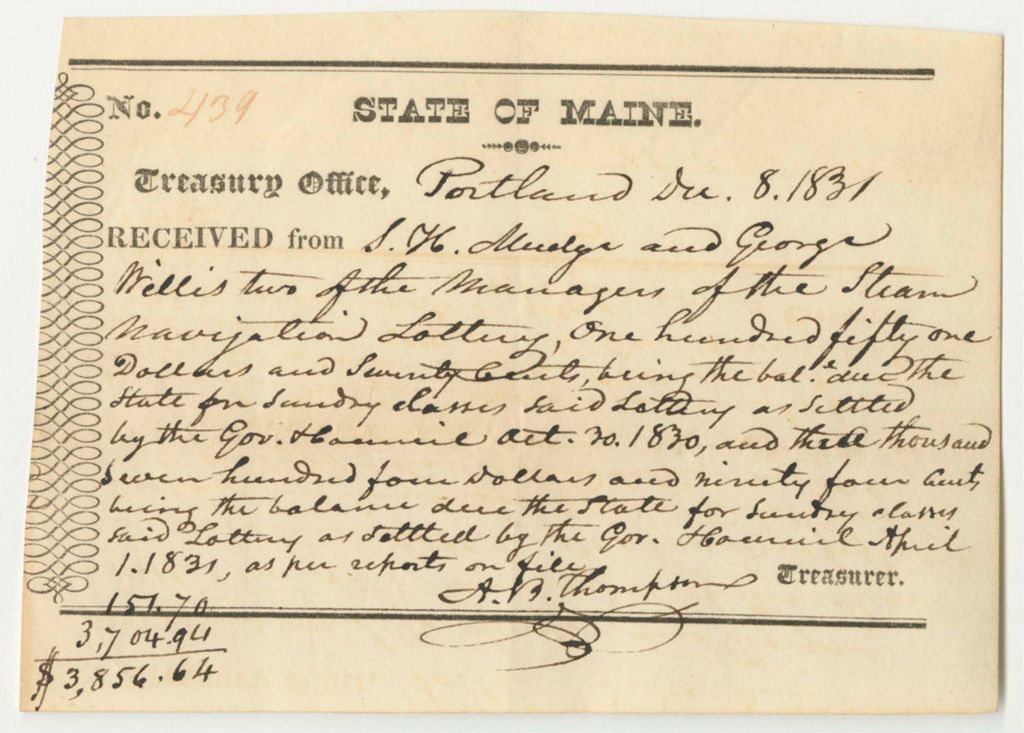 No. 439
STATE OF MAINE.
Treasury Office, Portland Dec. 8. 1831
RECEIVED from S. H. Mudge and George
Willis two of the Managers of the Steam
Navigation Lottery, One hundred fifty one
Dollars and Seventy Cents, being the bal.ce due the
State for Sundry classes said Lottery as settled
by the Gov. & Council Oct. 30. 1830, and three thousand
seven hundred four Dollars and ninety four Cents
being the balance due the State for Sundry classes
said Lottery as settled by the Gov. & Council April
1. 1831, as per reports on file
A. B. Thompson Treasurer.
151.70
3,704.94
$3,856.64